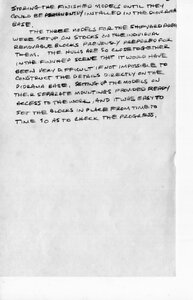 STORING THE FINISHED MODELS UNTIL THEY
COULD BE PERMANENTLY INSTALLED IN THE DIORAMA
BASE.
THE THREE MODELS FOR THE SHIPYARD DIORAMA
WERE SET UP ON STOCKS ON THE INDIVIDUAL
REMOVABLE BLOCKS PREVIOUSLY PREPARED FOR
THEM. THE HULLS ARE SO CLOSE TOGETHER
IN THE FINISHED SCENE THAT IT WOULD HAVE
BEEN VERY DIFFICULT IF NOT IMPOSSIBLE TO
CONSTRUCT THE DETAILS DIRECTLY ON THE
DIORAMA BASE. SETTING UP THE MODELS ON
THEIR SEPARATE MOUNTINGS PROVIDED READY
ACCESS TO THE WORK, AND IT WAS EASY TO
SET THE BLOCKS IN PLACE FROM TIME TO
TIME SO AS TO CHECK THE PROGRESS.